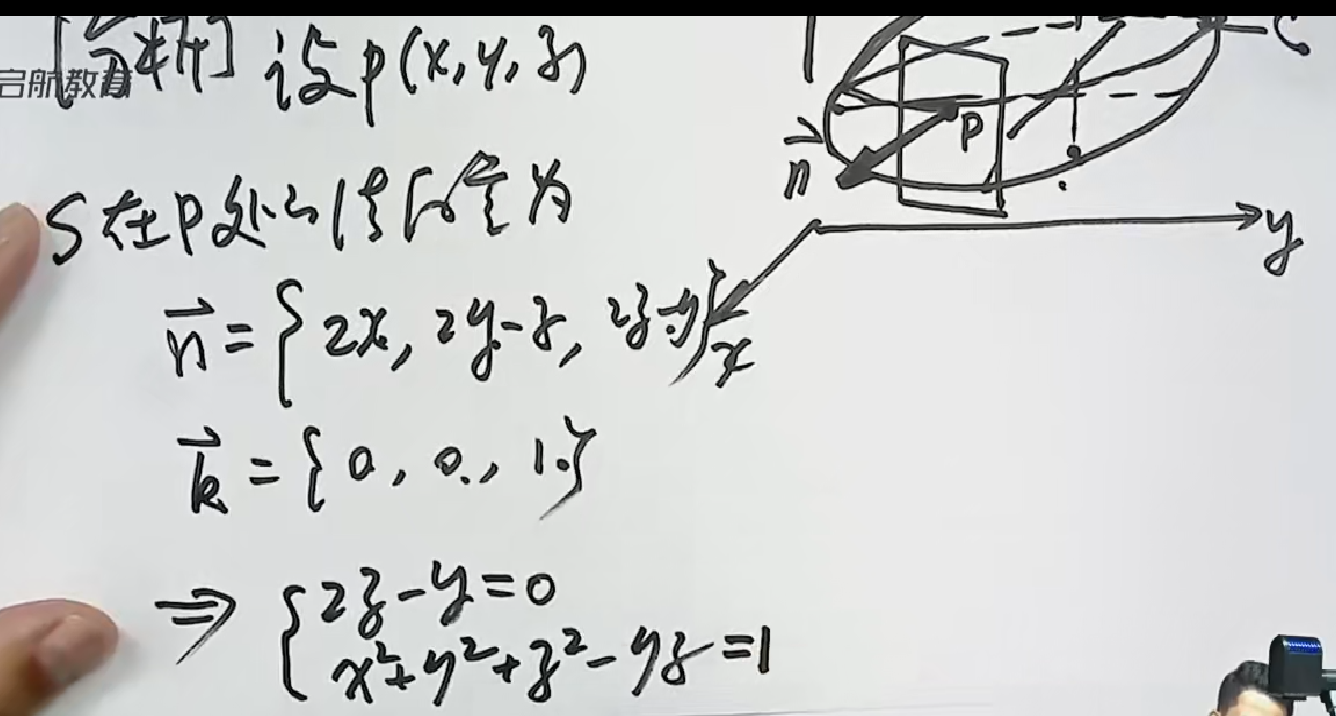 [分析] 设 P(x, y, z)
启航教育
S在P处的法向量为
n⃗ = {2x, 2y-z, 2z-y}
k⃗ = {0, 0, 1}
⇒ { 2z-y=0
x²+y²+z²-yz=1
C
P
n⃗
y
x